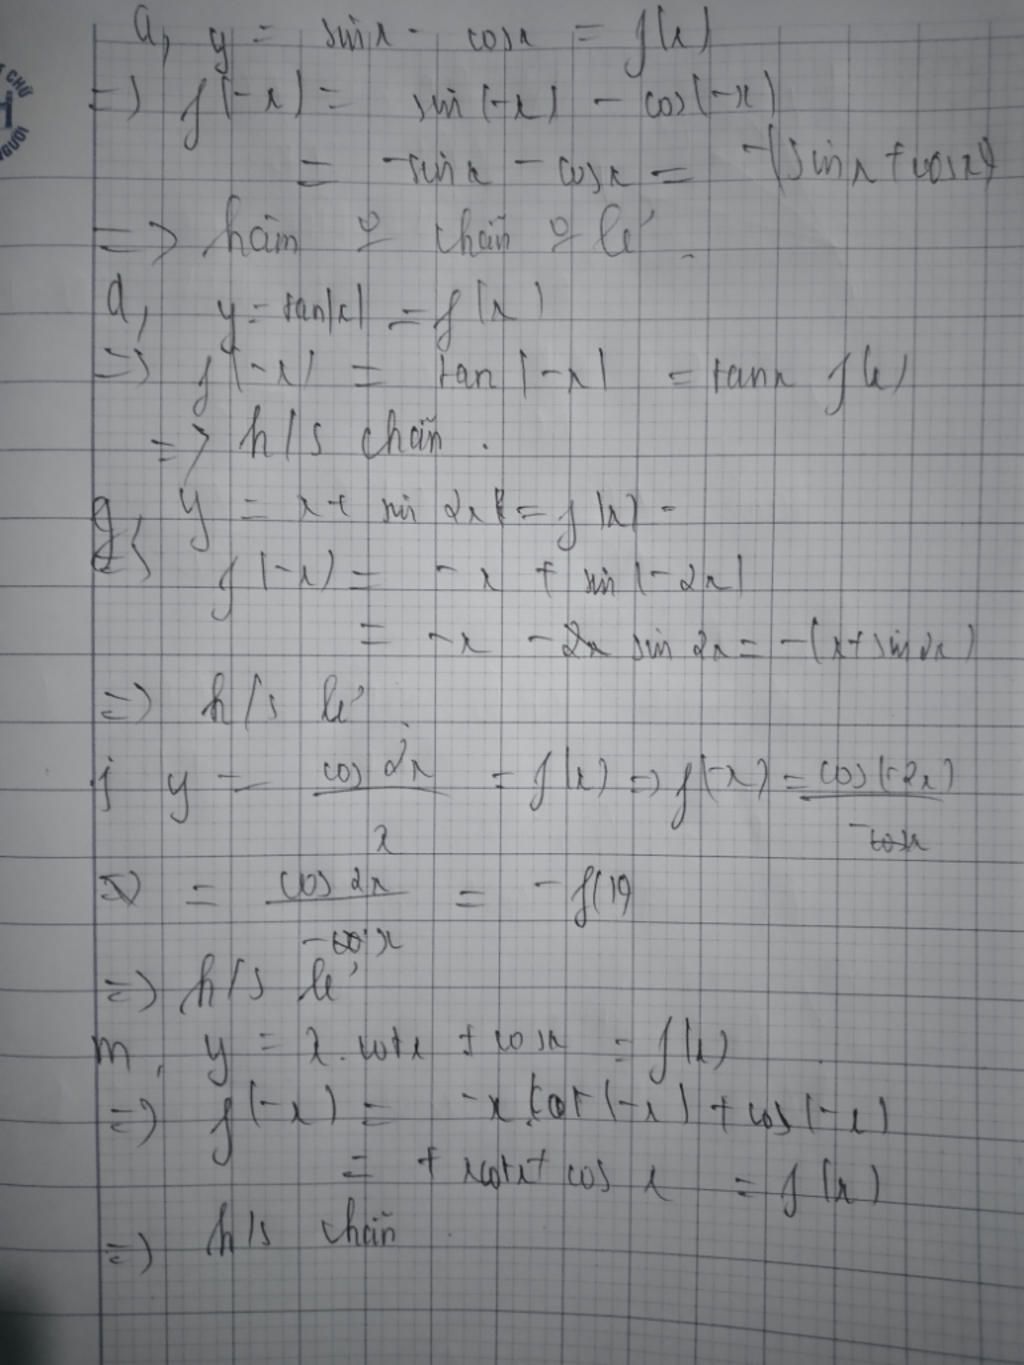 a, y = sinx - cosx = f(x)
=> f(-x) = sin(-x) - cos(-x)
= -sinx - cosx = -(sinx + cosx)
=> hàm o chẵn o lẻ.
d, y = tan|x| = f(x)
=> f(-x) = tan|-x| = tanx f(x)
=> h/s chẵn.
g, y = x + sin 2x = f(x)
=> f(-x) = -x + sin(-2x)
= -x - 2x sin 2x = -(x + sin 2x)
=> h/s lẻ
j y = cos 2x / x = f(x) => f(-x) = cos(-2x) / -cosx
= cos 2x / -cos x = -f(x)
=> h/s lẻ
m, y = x.cotx + cosx = f(x)
=> f(-x) = -x.cot(-x) + cos(-x)
= + xcotx + cos x = f(x)
=> h/s chẵn